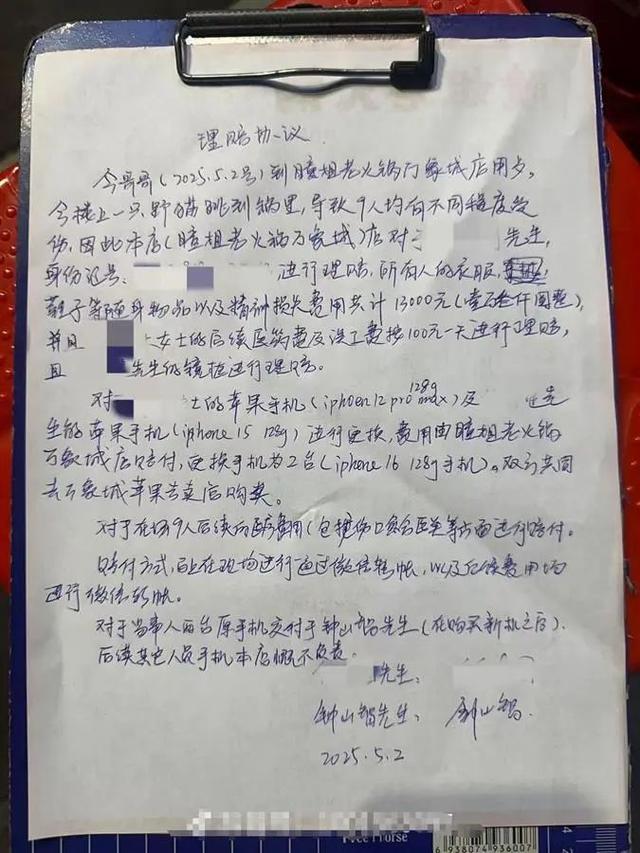 理赔协议
今哥哥(2025.5.2号)到瞳姐老火锅万象城店用歺,
今楼上一只野猫跳到锅里,导致9人均有不同程度受
伤,因此本店(瞳姐老火锅万象城)店对于 先生,
身份证号: 进行理赔,所有人的衣服,
鞋子等随身物品以及精神损失费用共计13000元(壹万叁仟圆整),
并且 女士的后续医药费及误工费按100元一天进行理赔,
且 先生的镜框进行理赔。
对 士的苹果手机(iphoen 12 pro max 128g)及 先
生的苹果手机(iphone 15 128g)进行更换,费用由瞳姐老火锅
万象城店赔付,更换手机为2台(iphone 16 128g手机)。双方共同
去万象城苹果专卖店购买。
对于在场9人后续医药费用(包括伤口愈合医美等方面进行赔付。
赔付方式,即在现场进行通过微信转帐,以及后续费用均
进行微信转帐。
对于当事人两台原手机交付于钟山 先生(在购买新机之后).
后续其它人员手机本店概不负责。
先生:
钟山 先生: 钟山
2025.5.2
FreeHorse
6 938074 936007